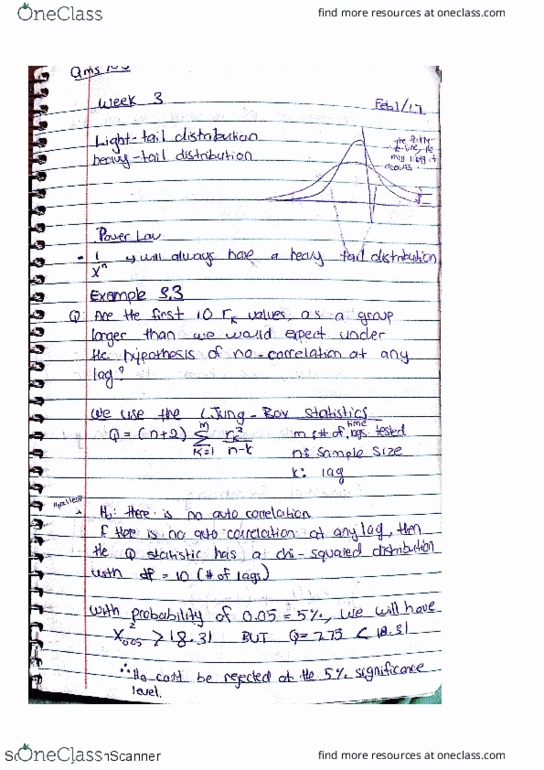 OneClass
find more resources at oneclass.com
Qms
Week 3
Feb 1/17
Light-tail distribution
heavy-tail distribution
Power Law
1/x^n → will always have a heavy tail distribution
Example 3.3
Q Are the first 10 rk values, as a group
larger than we would expect under
the hypothesis of no-correlation at any
lag?
We use the Ljung-Box statistics
Q = (n+2) m Σ K=1 rk^2/n-k
m : # of time lags tested
n: sample size
k: lag
Ho: there is no auto correlation
If there is no auto correlation at any lag, then
the Q statistic has a chi-squared distribution
with df = 10 (# of lags)
with probability of 0.05 = 5%, we will have
X^2 0.05 > 18.31 BUT Q= 7.75 < 18.31
∴ Ho can't be rejected at the 5% significance
level.
OneClass
Scanner
find more resources at oneclass.com